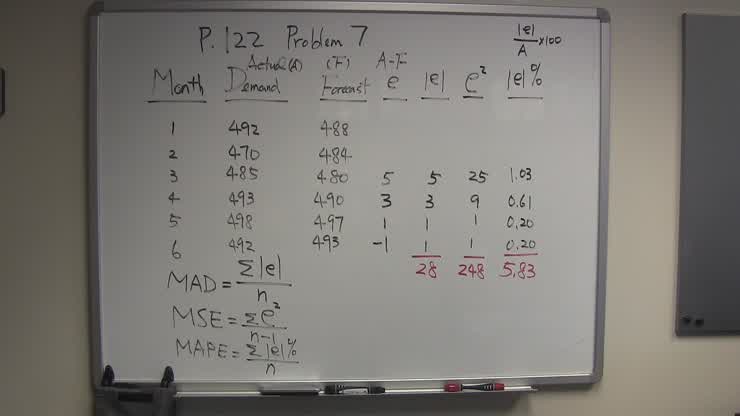 P. 122 Problem 7
|e|/A ×100
Actual(A) (F) A-F
Month Demand Forecast e |e| e² |e|%
1 492 488
2 470 484
3 485 480 5 5 25 1.03
4 493 490 3 3 9 0.61
5 498 497 1 1 1 0.20
6 492 493 -1 1 1 0.20
28 248 5.83
MAD = Σ|e|/n
MSE = Σe²/n-1
MAPE = Σ|e|%/n